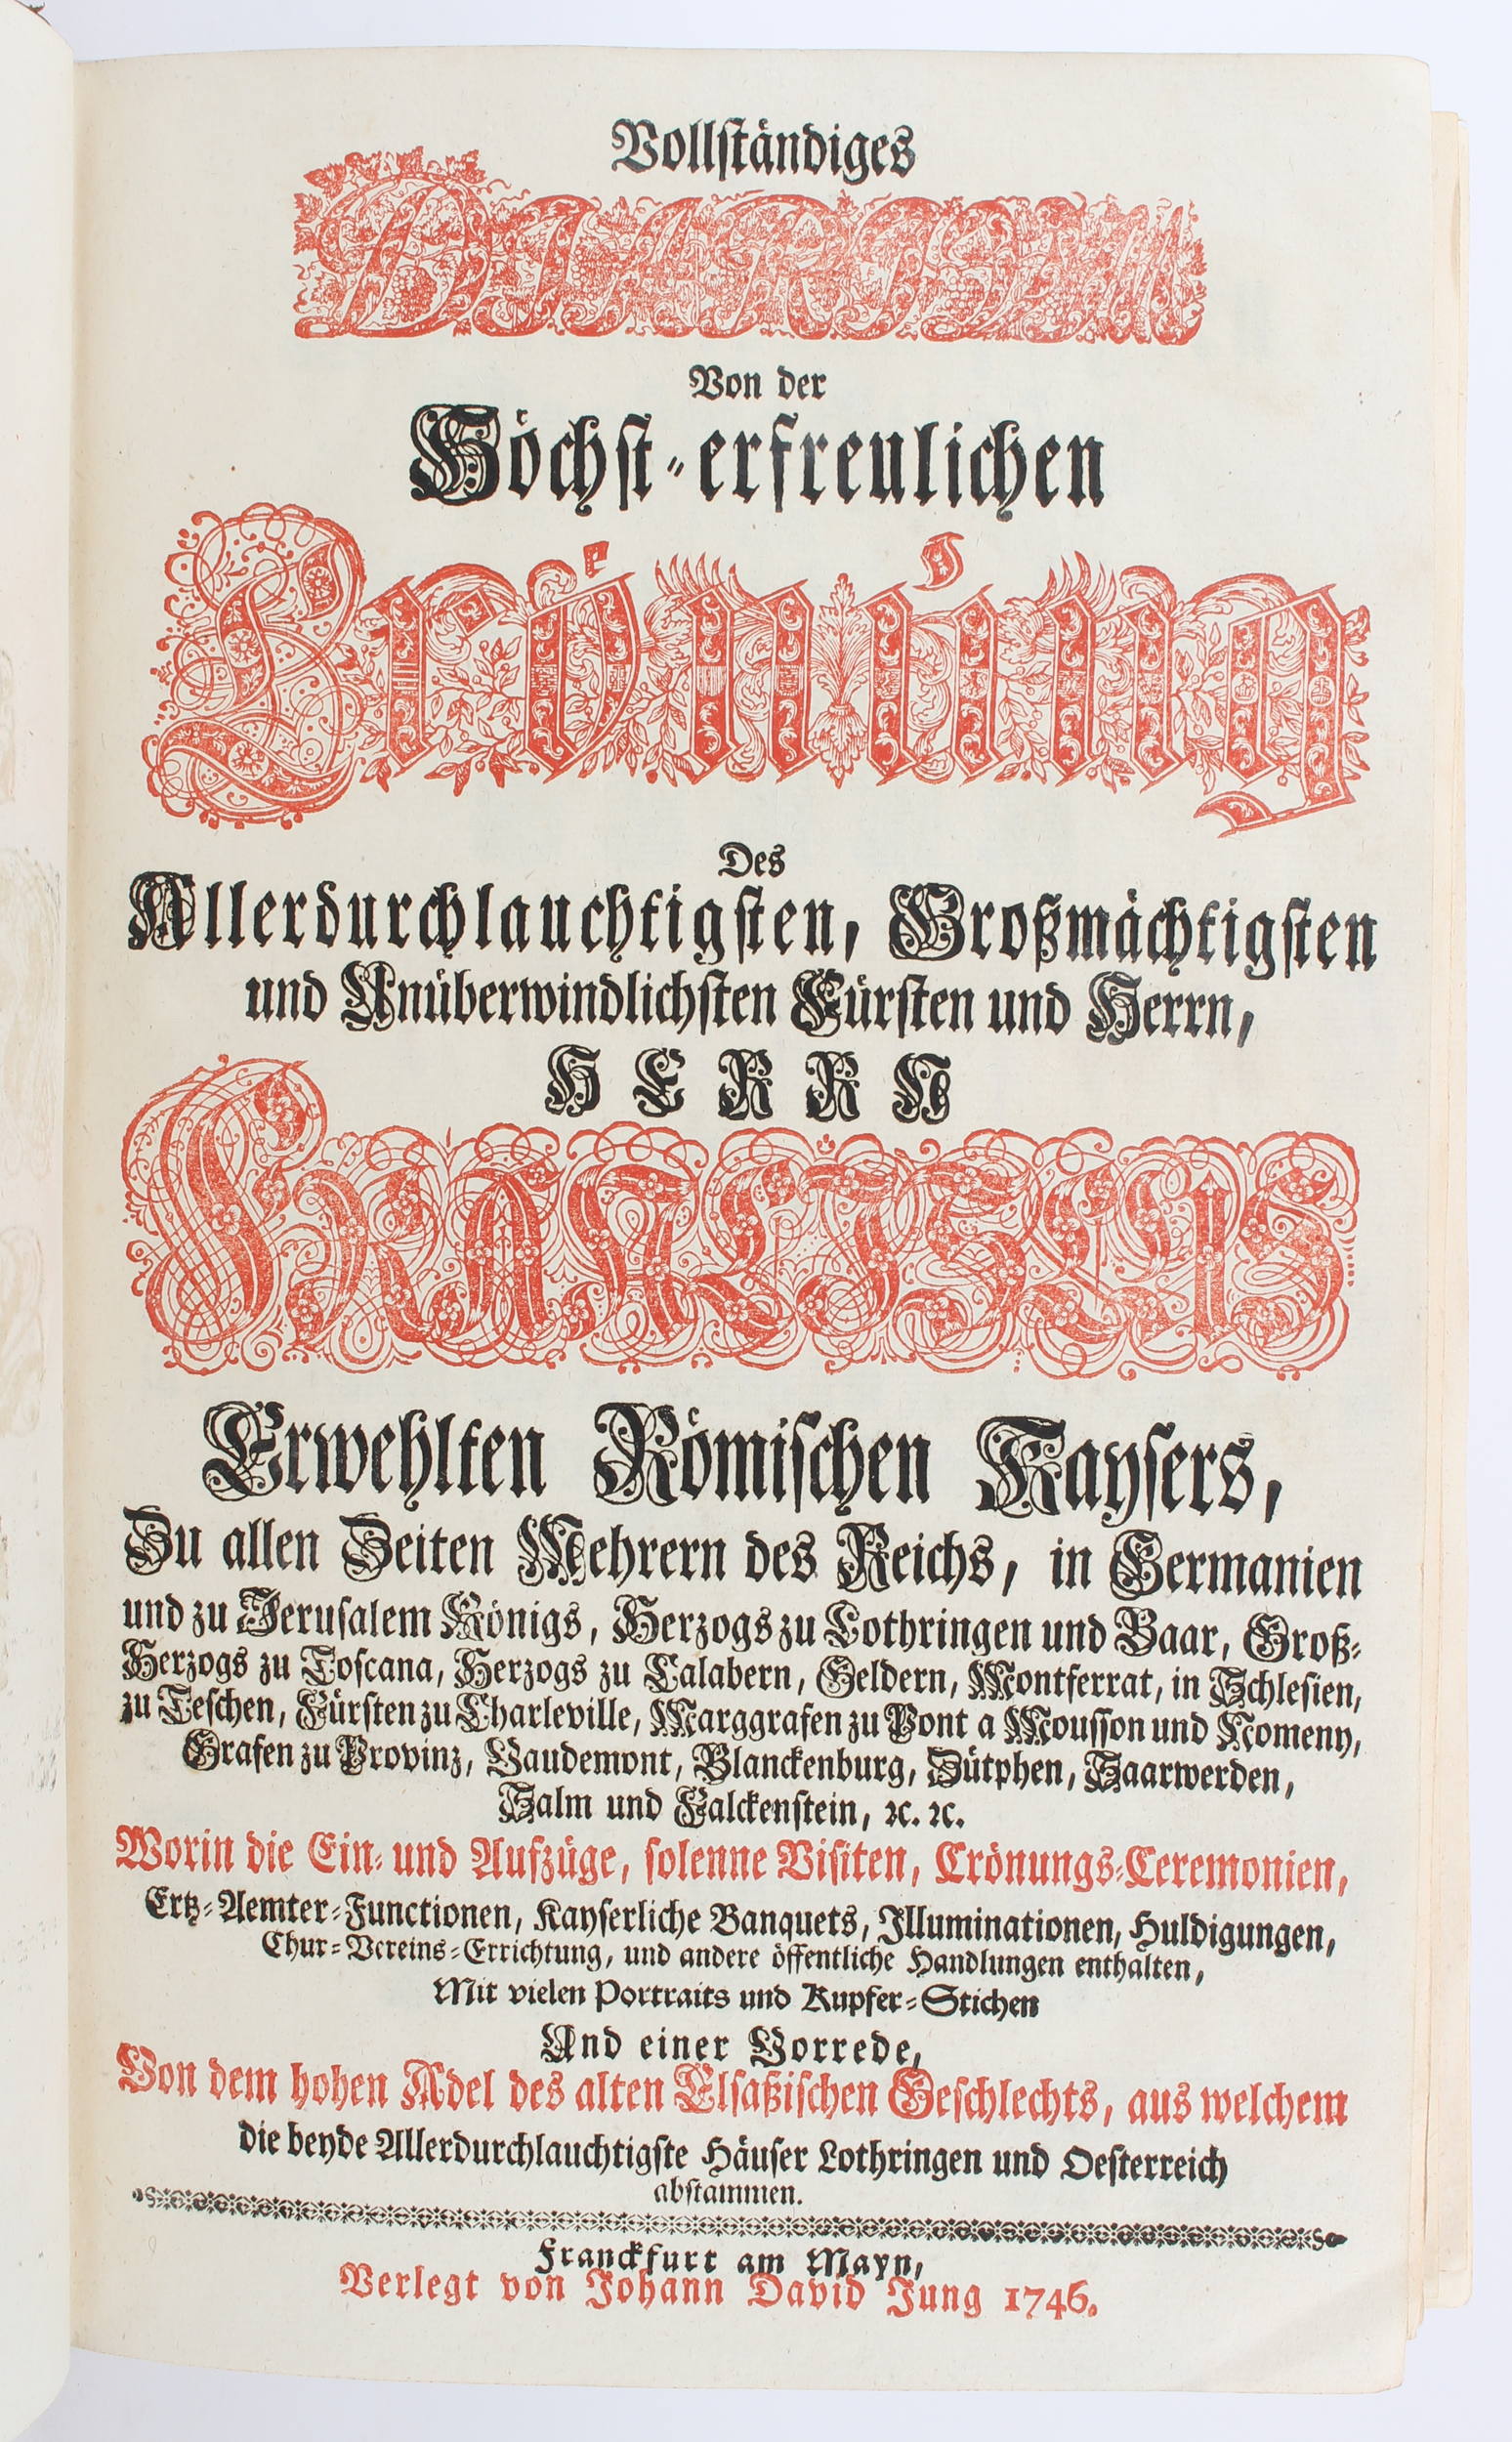 Vollständiges
DIARIUM
Von der
Höchst-erfreulichen
Crönung
Des
Allerdurchlauchtigsten, Großmächtigsten
und Unüberwindlichsten Fürsten und Herrn,
HERRN
FRANCISCUS
Erwehlten Römischen Kaysers,
Zu allen Zeiten Mehrern des Reichs, in Germanien
und zu Jerusalem Königs, Herzogs zu Lothringen und Baar, Groß-
Herzogs zu Toscana, Herzogs zu Calabern, Geldern, Montferrat, in Schlesien,
zu Teschen, Fürsten zu Charleville, Marggrafen zu Pont a Mousson und Nomeny,
Grafen zu Provinz, Vaudemont, Blanckenburg, Zütphen, Saarwerden,
Salm und Falckenstein, ꝛc. ꝛc.
Worin die Ein- und Aufzüge, solenne Visiten, Crönungs-Ceremonien,
Ertz-Aemter-Functionen, Kayserliche Banquets, Illuminationen, Huldigungen,
Chur-Vereins-Errichtung, und andere öffentliche Handlungen enthalten,
Mit vielen Portraits und Kupfer-Stichen
Und einer Vorrede,
Von dem hohen Adel des alten Elsaßischen Geschlechts, aus welchem
die beyde Allerdurchlauchtigste Häuser Lothringen und Oesterreich
abstammen.
Franckfurt am Mayn,
Verlegt von Johann David Jung 1746.